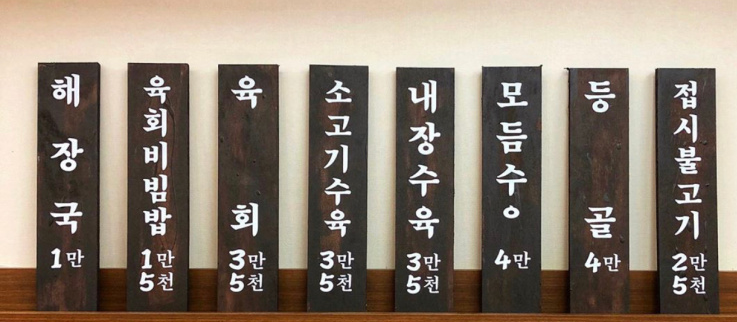 해장국
1만
육회비빔밥
1만
5천
육회
3만
5천
소고기수육
3만
5천
내장수육
3만
5천
모듬수ㅇ
4만
등골
4만
접시불고기
2만
5천